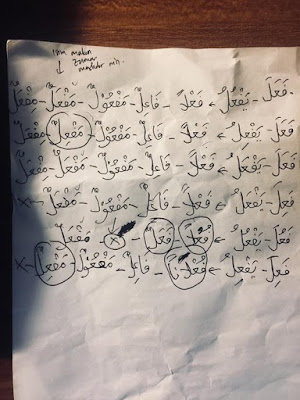 ism makan
zaman
masdar mim.
فَعَلَ - يَفْعُلُ ← فَعْلًا - فَاعِلٌ - مَفْعُوْلٌ - مَفْعَلٌ - مَفْعَلٌ
فَعَلَ - يَفْعِلُ ← فَعْلًا - فَاعِلٌ - مَفْعُوْلٌ - مَفْعِلٌ - مَفْعَلٌ
فَعَلَ - يَفْعَلُ ← فَعْلًا - فَاعِلٌ - مَفْعُوْلٌ - مَفْعَلٌ - مَفْعَلٌ
فَعِلَ - يَفْعَلُ ← فَعْلًا - فَاعِلٌ - مَفْعُوْلٌ - مَفْعَلٌ - x
فَعُلَ - يَفْعُلُ ← فُعْلًا - فَعْلٌ - x - مَفْعَلٌ
فَعِلَ - يَفْعِلُ ← فَاعِلٌ - مَفْعُوْلٌ - مَفْعِلٌ - x